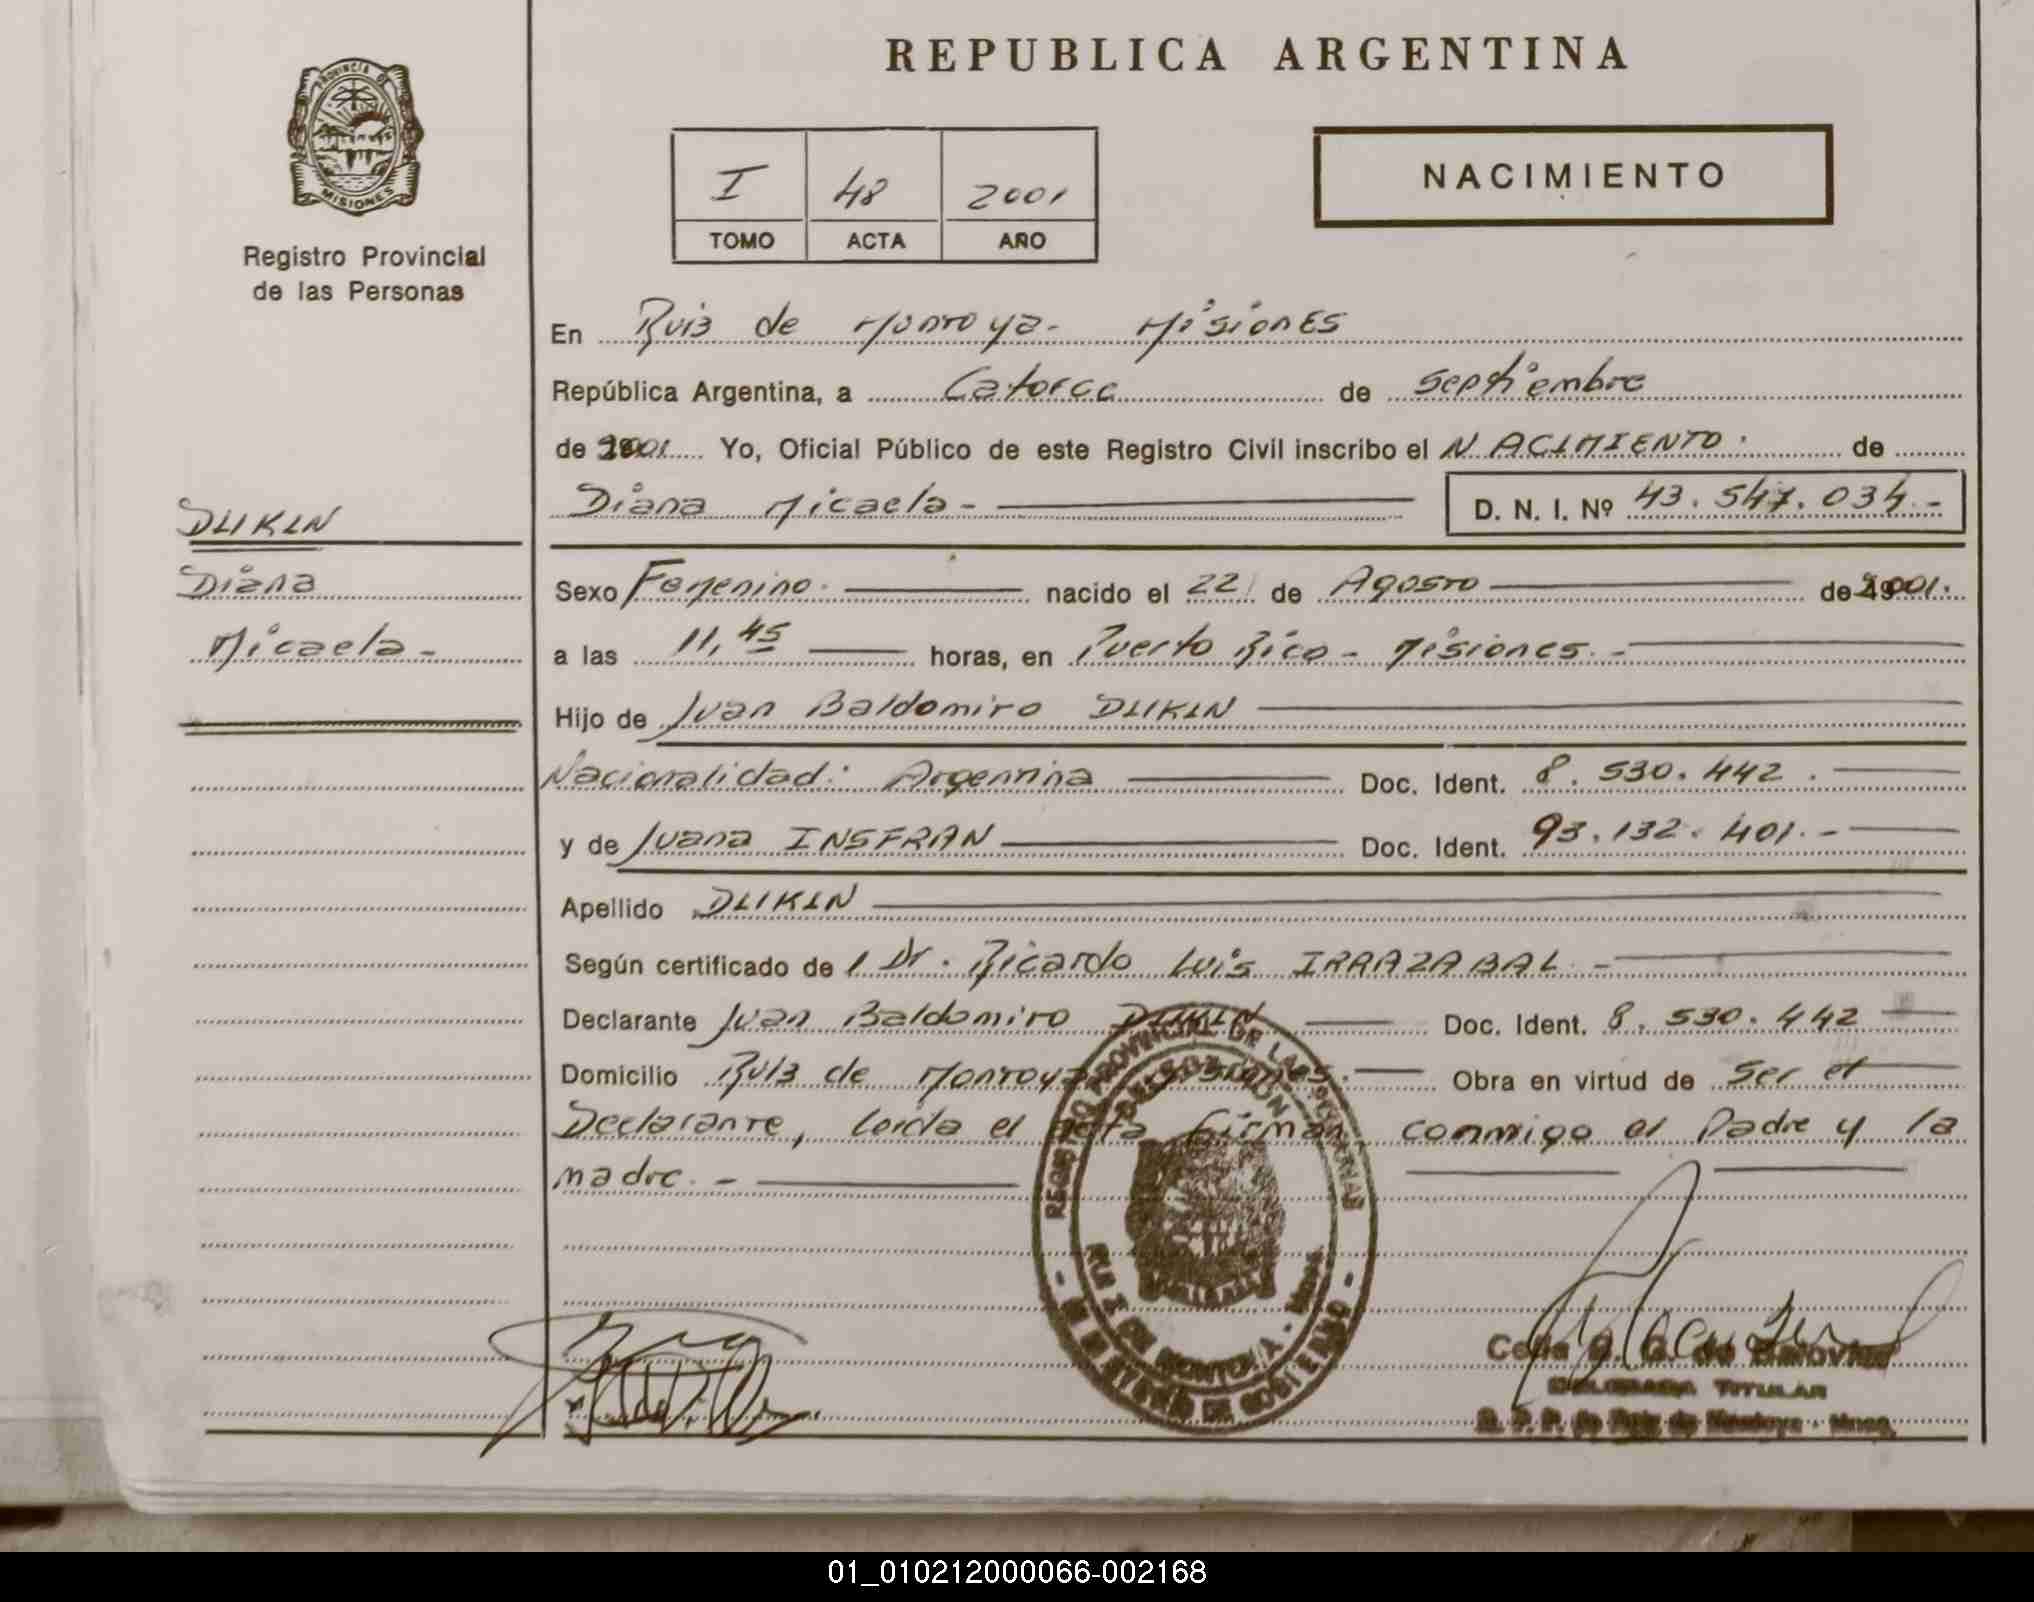 REPUBLICA ARGENTINA
PROVINCIA DE
MISIONES
Registro Provincial
de las Personas
I 48 2001
TOMO ACTA AÑO
NACIMIENTO
En Ruiz de Montoya- Misiones
República Argentina, a Catorce de Septiembre
de 2001 Yo, Oficial Público de este Registro Civil inscribo el NACIMIENTO. de
Diana Micaela - D. N. I. Nº 43.547.034.-
DLIKIN
Diana
Micaela -
Sexo Femenino. nacido el 22 de Agosto de 2001.
a las 11,45 horas, en Puerto Rico - Misiones. -
Hijo de Juan Baldomiro DLIKIN
Nacionalidad: Argentina Doc. Ident. 8.530.442.
y de Juana INSFRAN Doc. Ident. 93.132.401.-
Apellido DLIKIN
Según certificado de l Dr. Ricardo Luis IRRAZABAL -
Declarante Juan Baldomiro DLIKIN Doc. Ident. 8.530.442
Domicilio Ruiz de Montoya Misiones. Obra en virtud de Ser el
Declarante, leida el Acta firman conmigo el Padre y la
madre. -
REGISTRO PROVINCIAL DE LAS PERSONAS
RUIZ DE MONTOYA - MNES.
- MINISTERIO DE GOBIERNO -
DELEGADA TITULAR
R. P. P. de Ruiz de Montoya - Mnes.
01_010212000066-002168